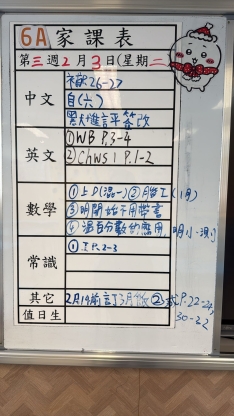 6A 家課表
第三週2月3日(星期二)
中文
補26-27
自(六)
簽改
英文
①WB P.3-4
②Chws 1 P.1-2
數學
①上D(混一)②月
③明開始不用帶書
④混百分數的應用
常識
①P.2-3
其它
2月19前訂3月飯
P.22-24,
30-32
值日生